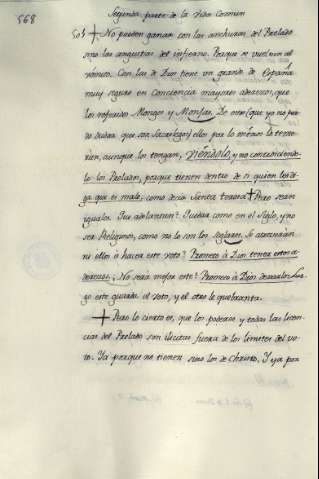 568
Segunda parte de la vida Comun
501 No pueden ganar con las anchuras del Prelado
sino las angustas del infierno. Porque se vuelven al
vómito. Con las de Dios tiene un grande de España
muy rigido en Conciencia mayores adornos, que
los referidos Monges y Monjas. De otro (que ya no pue-
de dudar que son Sacrilegos) ellos por lo menos lo tuvie-
rien, aunque los tengan, viéndolo, y no contradiciendo-
lo los Prelados, porque tienen dentro de si quien les di-
ga que es malo, como decia Santa Teresa Pero sean
iguales. Que adelantan? Quedar como en el Siglo, y no
ser Religiosos, como no lo son los seglares. Se atreverán
ni ellos a hacer este voto? Prometo à Dios tener estos a-
dornos; No será mejor este? Prometo à Dios dexarlos. Lue-
go este guarda el voto, y el otro le quebranta.
Pero lo cierto es, que los poderes y todas las licen-
cias del Prelado son ilicitas, fuera de los limites del vo-
to. Ya porque no tienen sino los de Christo, Y ya por